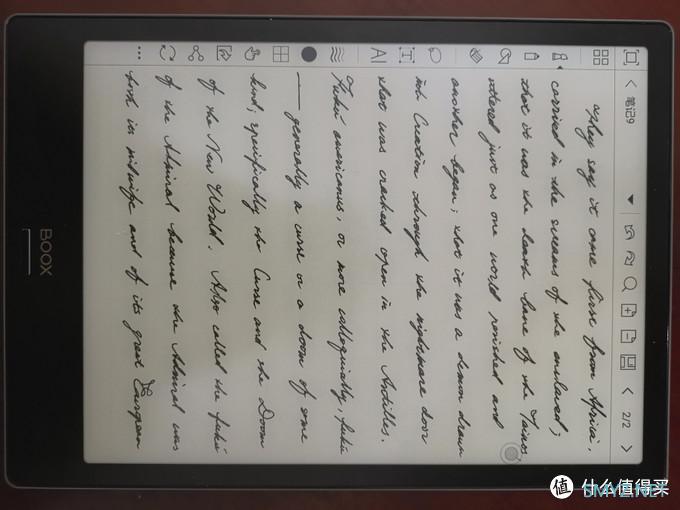 笔记9
2/2
AI
T
They say it came first from Africa,
carried in the screams of the enslaved;
that it was the death bane of the Tainos,
uttered just as one world perished and
another began; that it was a demon drawn
into Creation through the nightmare door
that was cracked open in the Antilles.
Fukú americanus, or more colloquially, fukú
—— generally a curse or a doom of some
kind; specifically the Curse and the Doom
of the New World. Also called the fukú
of the Admiral because the Admiral was
both its midwife and of its great European
BOOX
值 什么值得买
SMYZ.NET